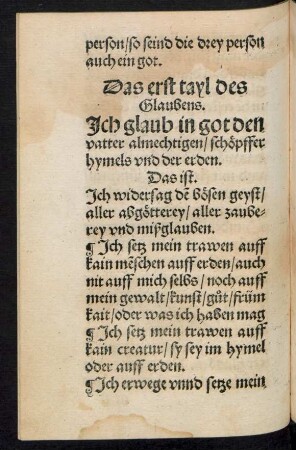 person/so seind die drey person
auch ein got.
Das erst tayl des
Glaubens.
Ich glaub in got den
vatter almechtigen/schöpffer
hymels vnd der erden.
Das ist.
Ich widersag dē bösen geyst/
aller abgötterey/aller zaube-
rey vnd mißglauben.
¶ Ich setz mein trawen auff
kain mēschen auff erden/auch
nit auff mich selbs/noch auff
mein gewalt/kunst/gůt/frům
kait/oder was ich haben mag
¶ Ich setz mein trawen auff
kain creatur/sy sey im hymel
oder auff erden.
¶ Ich erwege vnnd setze mein